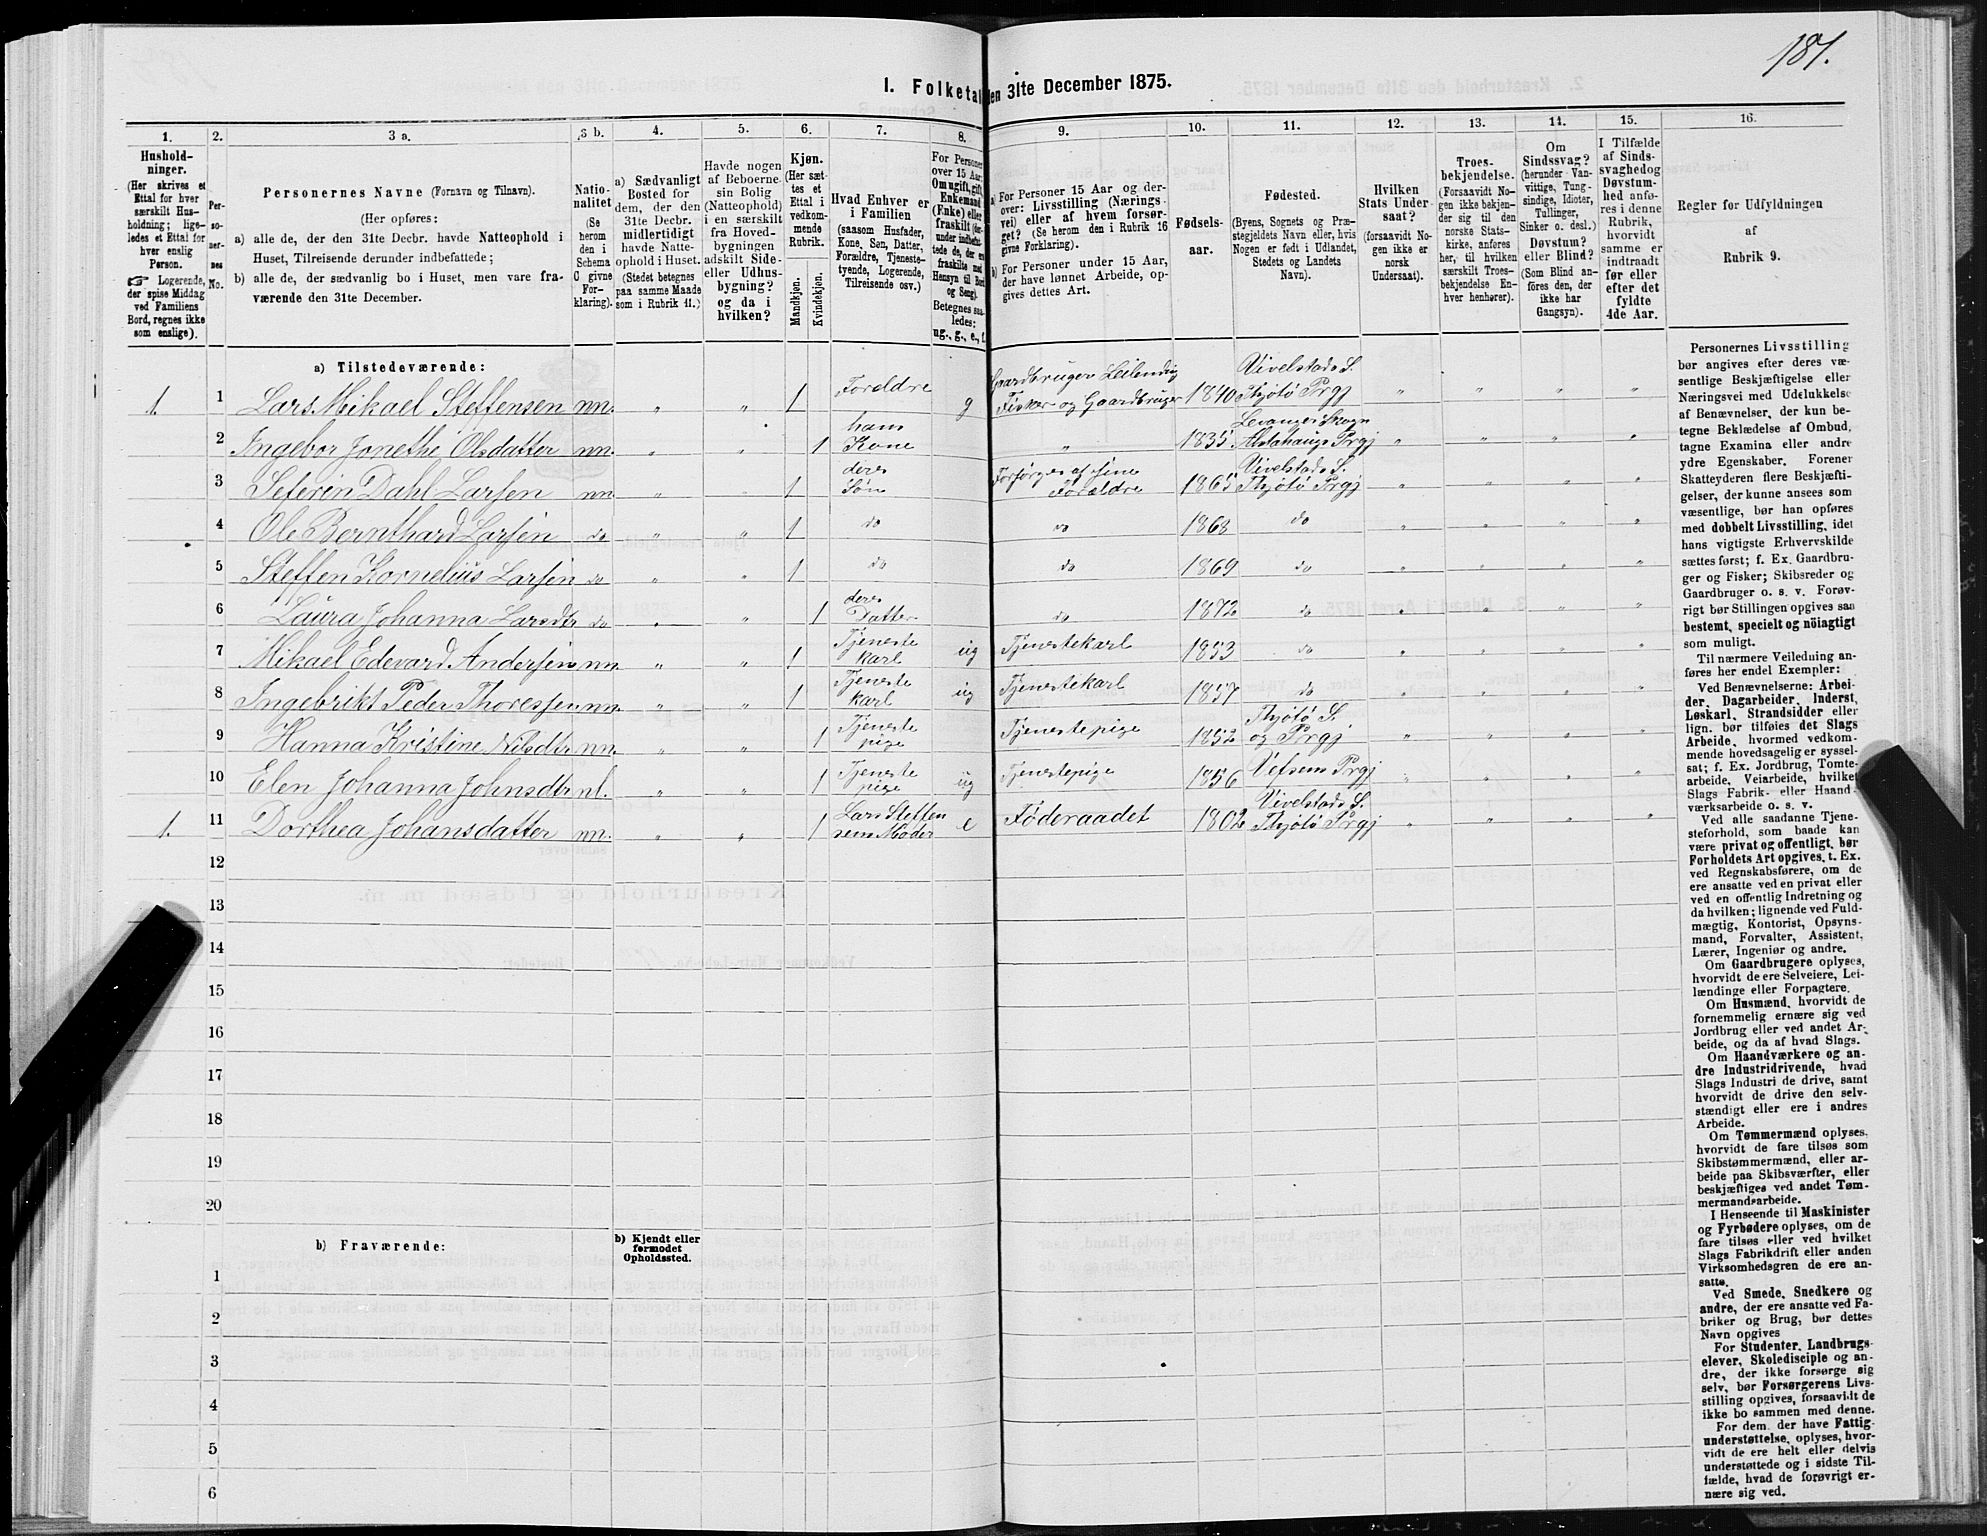 181.
I. Folketal den 31te December 1875.
1. 2. 3 a. 3 b. 4. 5. 6. 7. 8. 9. 10. 11. 12. 13. 14. 15. 16.
Husholdninger.
(Her skrives et
Ettal for hver
særskilt Husholdning;
ligeledes et Ettal for
hver enslig
Person.
Logerende,
der spise Middag
ved Familiens
Bord, regnes ikke
som enslige).
Personernes No.
Personernes Navne (Fornavn og Tilnavn).
(Her opføres:
a) alle de, der den 31te Decbr. havde Natteophold i
Huset, Tilreisende derunder indbefattede;
b) alle de, der sædvanlig bo i Huset, men vare fraværende
den 31te December.
Nationalitet
(Se
herom
den i
Schema
C givne
Forklaring).
a) Sædvanligt
Bosted for
dem, der den
31te Decbr.
midlertidigt
havde Natteophold
i Huset.
(Stedet betegnes
paa samme Maade
som i Rubrik 11.)
Havde nogen
af Beboerne
sin Bolig
(Natteophold)
i en særskilt
fra Hovedbygningen
adskilt Side-
eller Udhusbygning?
og da i
hvilken?
Kjøn.
(Her sættes
et
Ettal i
vedkommende
Rubrik.
Mandkjøn.
Kvindekjøn.
Hvad Enhver er
i Familien
(saasom Husfader,
Kone, Søn, Datter,
Forældre, Tjenestetyende,
Logerende,
Tilreisende osv.)
For Personer
over 15 Aar:
Om ugift, gift,
Enkemand
(Enke) eller
fraskilt (derunder
indbefattede
de, der ere
fraskilte med
Hensyn til Bord
og Seng).
Betegnes saaledes:
ug., g., e., f.
a) For Personer 15 Aar og derover:
Livsstilling (Næringsvei)
eller af hvem forsørget?
(Se herom den i Rubrik 16
givne Forklaring).
b) For Personer under 15 Aar,
der have lønnet Arbeide, opgives
dettes Art.
Fødselsaar.
Fødested.
(Byens, Sognets og Præstegjeldets
Navn eller, hvis
Nogen er født i Udlandet,
Stedets og Landets
Navn).
Hvilken
Stats Undersaat?
(forsaavidt Nogen
ikke er
norsk
Undersaat).
Troesbekjendelse.
(Forsaavidt Nogen
ikke bekjender
sig til den
norske Statskirke,
anføres
her, til hvilken
særskilt Troesbekjendelse
Enhver
henhører).
Om
Sindssvag?
(herunder Vanvittige,
Tungsindige,
Idioter,
Tullinger,
Sinker o. desl.)
Døvstum?
eller Blind?
(Som Blind anføres
den, der
ikke har
Gangsyn).
I Tilfælde
af Sindssvaghed
og
Døvstumhed
anføres
i denne
Rubrik,
hvorvidt
samme er
indtraadt
før eller
efter det
fyldte
4de Aar.
Regler for Udfyldningen
af
Rubrik 9.
a) Tilstedeværende:
1. 1 Lars Mikael Steffensen nn. " " 1 Forældre g Gaardbruger Leilending Fisker og Gaardbruger 1840 Vivelstads S. Thjøtø Prgj " " " "
2 Ingebor Jonethe Olsdatter nn. " " 1 hans Kone " 1835 Levanger Sogn Alstahaugs Prgj " " " "
3 Seferin Dahl Larsen nn. " " 1 deres Søn Forsørges af sine Forældre 1865 Vivelstads S. Thjøtø Prgj " " " "
4 Ole Bernthard Larsen do " " 1 do do 1868 do " " " "
5 Steffen Kornelius Larsen do " " 1 do do 1869 do " " " "
6 Laura Johanna Larsdtr do " " 1 deres Datter do 1872 do " " " "
7 Mikael Edevard Andersen nn. " " 1 Tjeneste karl ug Tjenestekarl 1853 do " " " "
8 Ingebrikt Peder Thoressen nn. " " 1 Tjeneste karl ug Tjenestekarl 1857 do " " " "
9 Hanna Kristine Nilsdtr nn. " " 1 Tjeneste pige Tjenestepige 1852 Thjøtø S. og Prgj " " " "
10 Elen Johanna Johnsdtr nl. " " 1 Tjeneste pige ug Tjenestepige 1856 Vefsens Prgj " " " "
1. 11 Dorthea Johansdatter nn. " " 1 Lars Steffensens Moder e Føderaadet 1802 Vivelstads S. Thjøtø Prgj " " " "
12
13
14
15
16
17
18
19
20
b) Fraværende:
b) Kjendt eller
formodet
Opholdssted.
1
2
3
4
5
6
Personernes Livsstilling
bør angives efter deres væsentlige
Beskjæftigelse eller
Næringsvei med Udelukkelse
af Benævnelser, der kun betegne
Beklædelse af Ombud,
tagne Examina eller andre
ydre Egenskaber. Forener
Skatteyderen flere Beskjæftigelser,
der kunne ansees som
væsentlige, bør han opføres
med dobbelt Livsstilling, idet
hans vigtigste Erhvervskilde
sættes først; f. Ex. Gaardbruger
og Fisker; Skibsreder og
Gaardbruger o. s. v. Forøvrigt
bør Stillingen opgives saa
bestemt, specielt og nöiagtigt
som muligt.
Til nærmere Veiledning anføres
her endel Exempler:
Ved Benævnelserne: Arbeider,
Dagarbeider, Inderst,
Løskarl, Strandsidder eller
lign. bør tilføies det Slags
Arbeide, hvormed vedkommende
hovedsagelig er sysselsat;
f. Ex. Jordbrug, Tomtearbeide,
Veiarbeide, hvilket
Slags Fabrik- eller Haandværksarbeide
o. s. v.
Ved alle saadanne Tjenesteforhold,
som baade kan
være privat og offentligt, bør
Forholdets Art opgives, t. Ex.
ved Regnskabsførere, om de
ere ansatte ved en privat eller
ved en offentlig Indretning og
da hvilken; lignende ved Fuldmægtig,
Kontorist, Opsynsmand,
Forvalter, Assistent,
Lærer, Ingeniør og andre.
Om Gaardbrugere oplyses,
hvorvidt de ere Selveiere, Leilændinge
eller Forpagtere.
Om Husmænd, hvorvidt de
fornemmelig ernære sig ved
Jordbrug eller ved andet Arbeide,
og da af hvad Slags.
Om Haandværkere og andre
Industridrivende, hvad
Slags Industri de drive, samt
hvorvidt de drive den selvstændigt
eller ere i andres
Arbeide.
Om Tømmermænd oplyses,
hvorvidt de fare tilsøs som
Skibstømmermænd, eller arbeide
paa Skibsværfter, eller
beskjæftiges ved andet Tømmermandsarbeide.
I Henseende til Maskinister
og Fyrbødere oplyses, om de
fare tilsøs eller ved hvilket
Slags Fabrikdrift eller anden
Virksomhedsgren de ere ansatte.
Ved Smede, Snedkere og
andre, der ere ansatte ved Fabriker
og Brug, bør dettes
Navn opgives
For Studenter, Landbrugselever,
Skoledisciple og andre,
der ikke forsørge sig
selv, bør Forsørgerens Livsstilling
opgives, forsaavidt de
ikke bo sammen med denne.
For dem, der have Fattigunderstøttelse,
oplyses, hvorvidt
de ere helt eller delvis
understøttede og i sidste Tilfælde,
hvad de forøvrigt ernære
sig ved.